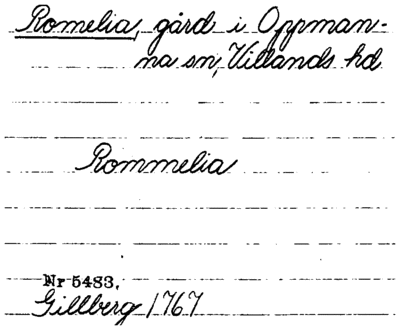 Romelia, gård i Oppman-
na sn, Villands hd
Rommelia
Nr 5483.
Gillberg 1767